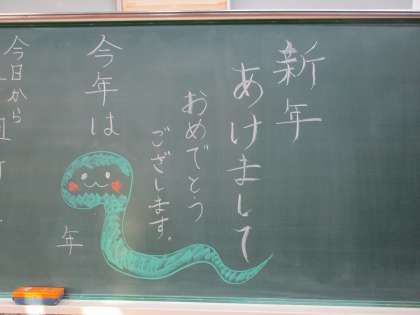 新年
あけまして
おめでとう
ございます。
今年は
年
今日から